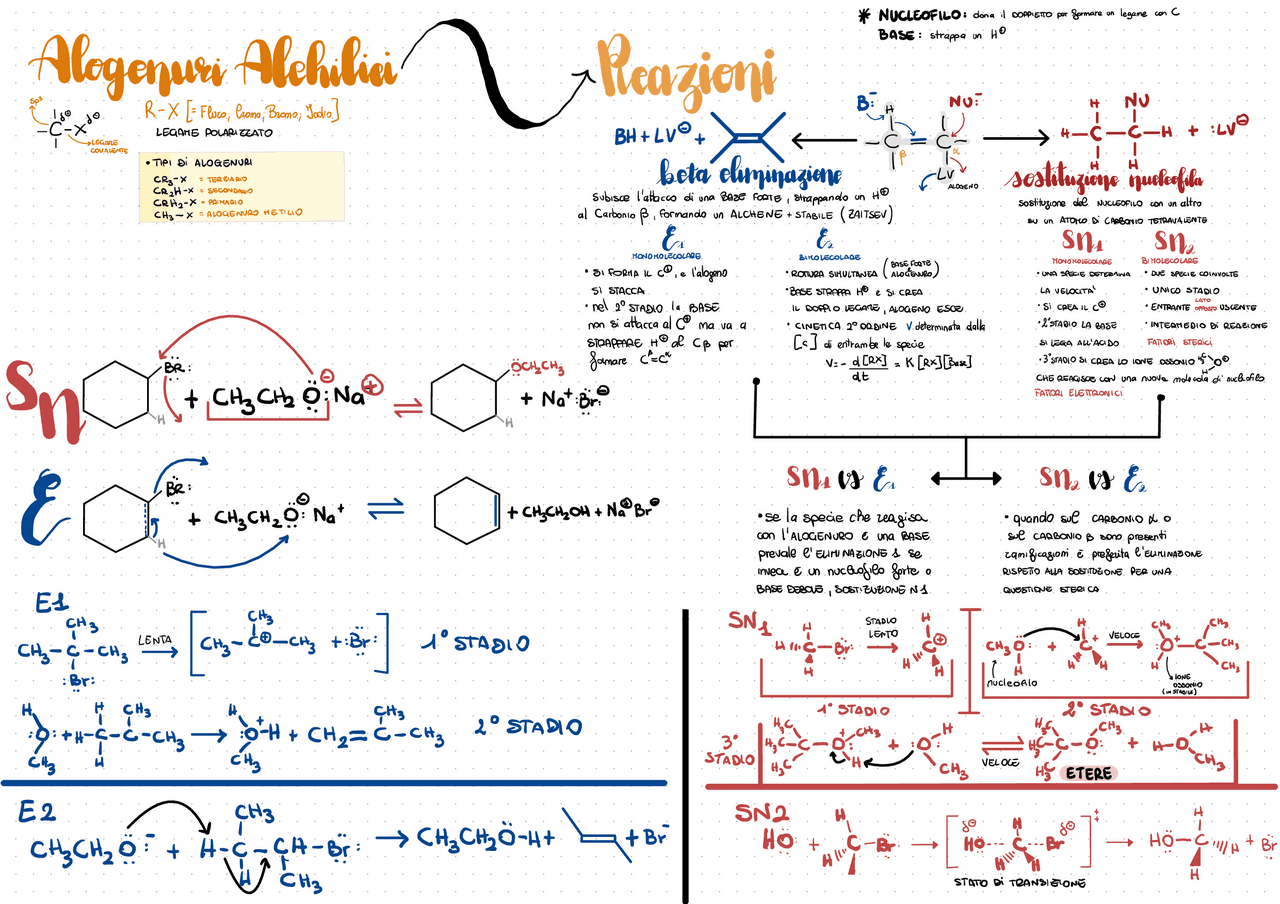 * NUCLEOFILO: dona il DOPPIETTO per formare un legame con C
BASE: strappa un H⊕
Alogenuri Alchilici
Reazioni
sp3
δ⊕
δ⊖
C-X
LEGAME
COVALENTE
R-X [= Fluoro, Cloro, Bromo, Iodio]
LEGAME POLARIZZATO
• TIPI DI ALOGENURI
CR3-X = TERZIARIO
CR2H-X = SECONDARIO
CRH2-X = PRIMARIO
CH3-X = ALOGENURO METILICO
B:⁻
NU:⁻
BH + LV⊖ +
H
C
C
β
α
LV
ALOGENO
H NU
H-C-C-H + :LV⊖
H H
beta eliminazione
SUBISCE l'attacco di una BASE FORTE, strappando un H⊕
al Carbonio β, formando un ALCHENE + STABILE (ZAITSEV)
sostituzione nucleofila
sostituzione del NUCLEOFILO con un altro
su un ATOMO DI CARBONIO TETRAVALENTE
E1
MONOMOLECOLARE
• SI FORMA IL C⊕, e l'alogeno
SI STACCA
• nel 2° STADIO la BASE
non si attacca al C⊕ ma va a
STRAPPARE H⊕ al Cβ per
formare C=C
E2
BIMOLECOLARE
• ROTTURA SIMULTANEA (BASE FORTE
ALOGENURO)
• BASE STRAPPA H⊕ E SI CREA
IL DOPPIO LEGAME, ALOGENO ESCE
• CINETICA 2° ORDINE V determinata dalla
[c] di entrambe le specie
V = - d[RX]/dt = K [RX][Base]
SN1
MONOMOLECOLARE
• UNA SPECIE DETERMINA
LA VELOCITA'
• SI CREA IL C⊕
• 2° STADIO LA BASE
SI LEGA ALL'ACIDO
• 3° STADIO SI CREA LO IONE OSSONIO H O⊕ H
CHE REAGISCE CON UNA NUOVA molecola di nucleofilo
FATTORI ELETTRONICI
SN2
BIMOLECOLARE
• DUE SPECIE COINVOLTE
• UNICO STADIO
• ENTRANTE LATO OPPOSTO USCENTE
• INTERMEDIO DI REAZIONE
FATTORI STERICI
Sn
Br:
H
+ CH3CH2O:⊖ Na⊕ ⇌
OCH2CH3
H
+ Na⁺ :Br:⊖
E
Br:
H
+ CH3CH2O:⊖ Na⁺ ⇌ + CH3CH2OH + Na⊕ Br⊖
SN1 vs E1
• se la specie che reagisce
con l'ALOGENURO È UNA BASE
PREVALE l'ELIMINAZIONE 1 SE
invece È un nucleofilo forte o
BASE DEBOLE, SOSTITUZIONE N1
SN2 vs E2
• quando sul CARBONIO α o
SUL CARBONIO β sono presenti
ramificazioni È preferita l'ELIMINAZIONE
RISPETTO ALLA SOSTITUZIONE PER UNA
QUESTIONE STERICA
E1
CH3
CH3-C-CH3
:Br:
LENTA
CH3
CH3-C⊕-CH3 + :Br:
1° STADIO
H
:O:
CH3
+
H CH3
H-C-C-CH3
H
→
H
:O⁺-H
CH3
+
CH3
CH2=C-CH3
2° STADIO
E2
CH3CH2O:⁻ +
CH3
H-C-CH-Br:
H CH3
→ CH3CH2O-H + + Br⁻
SN1
H
H C Br:
H
STADIO
LENTO
H
C⊕
H H
1° STADIO
CH3O:
H
nucleofilo
+
H
C⁺
H H
VELOCE
CH3 CH3
:O⁺-C-CH3
H CH3
IONE
OSSONIO
(INSTABILE)
2° STADIO
3°
STADIO
H3C
H3C-C-O⁺-CH3
H3C H
+
:O H
CH3
⇌
VELOCE
H3C
H3C-C-O: CH3
H3C
ETERE
+
H-O:
CH3
SN2
HO: +
H
C-Br:
H
→
δ⊖ H δ⊖
HO---C---Br:
H H
‡
STATO DI TRANSIZIONE
→
HO-C H
H
H
+ Br